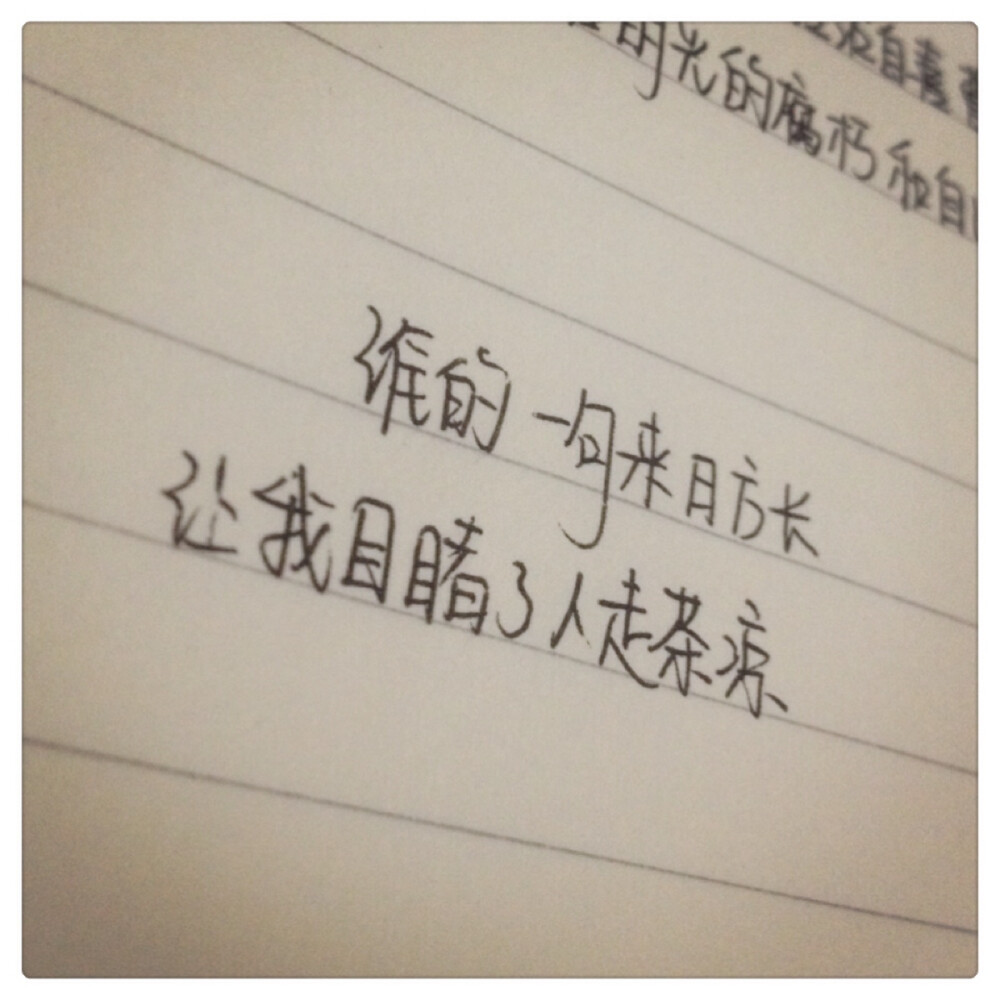 自责
明光的腐朽和自
谁的一句来日方长
让我目睹了人走茶凉